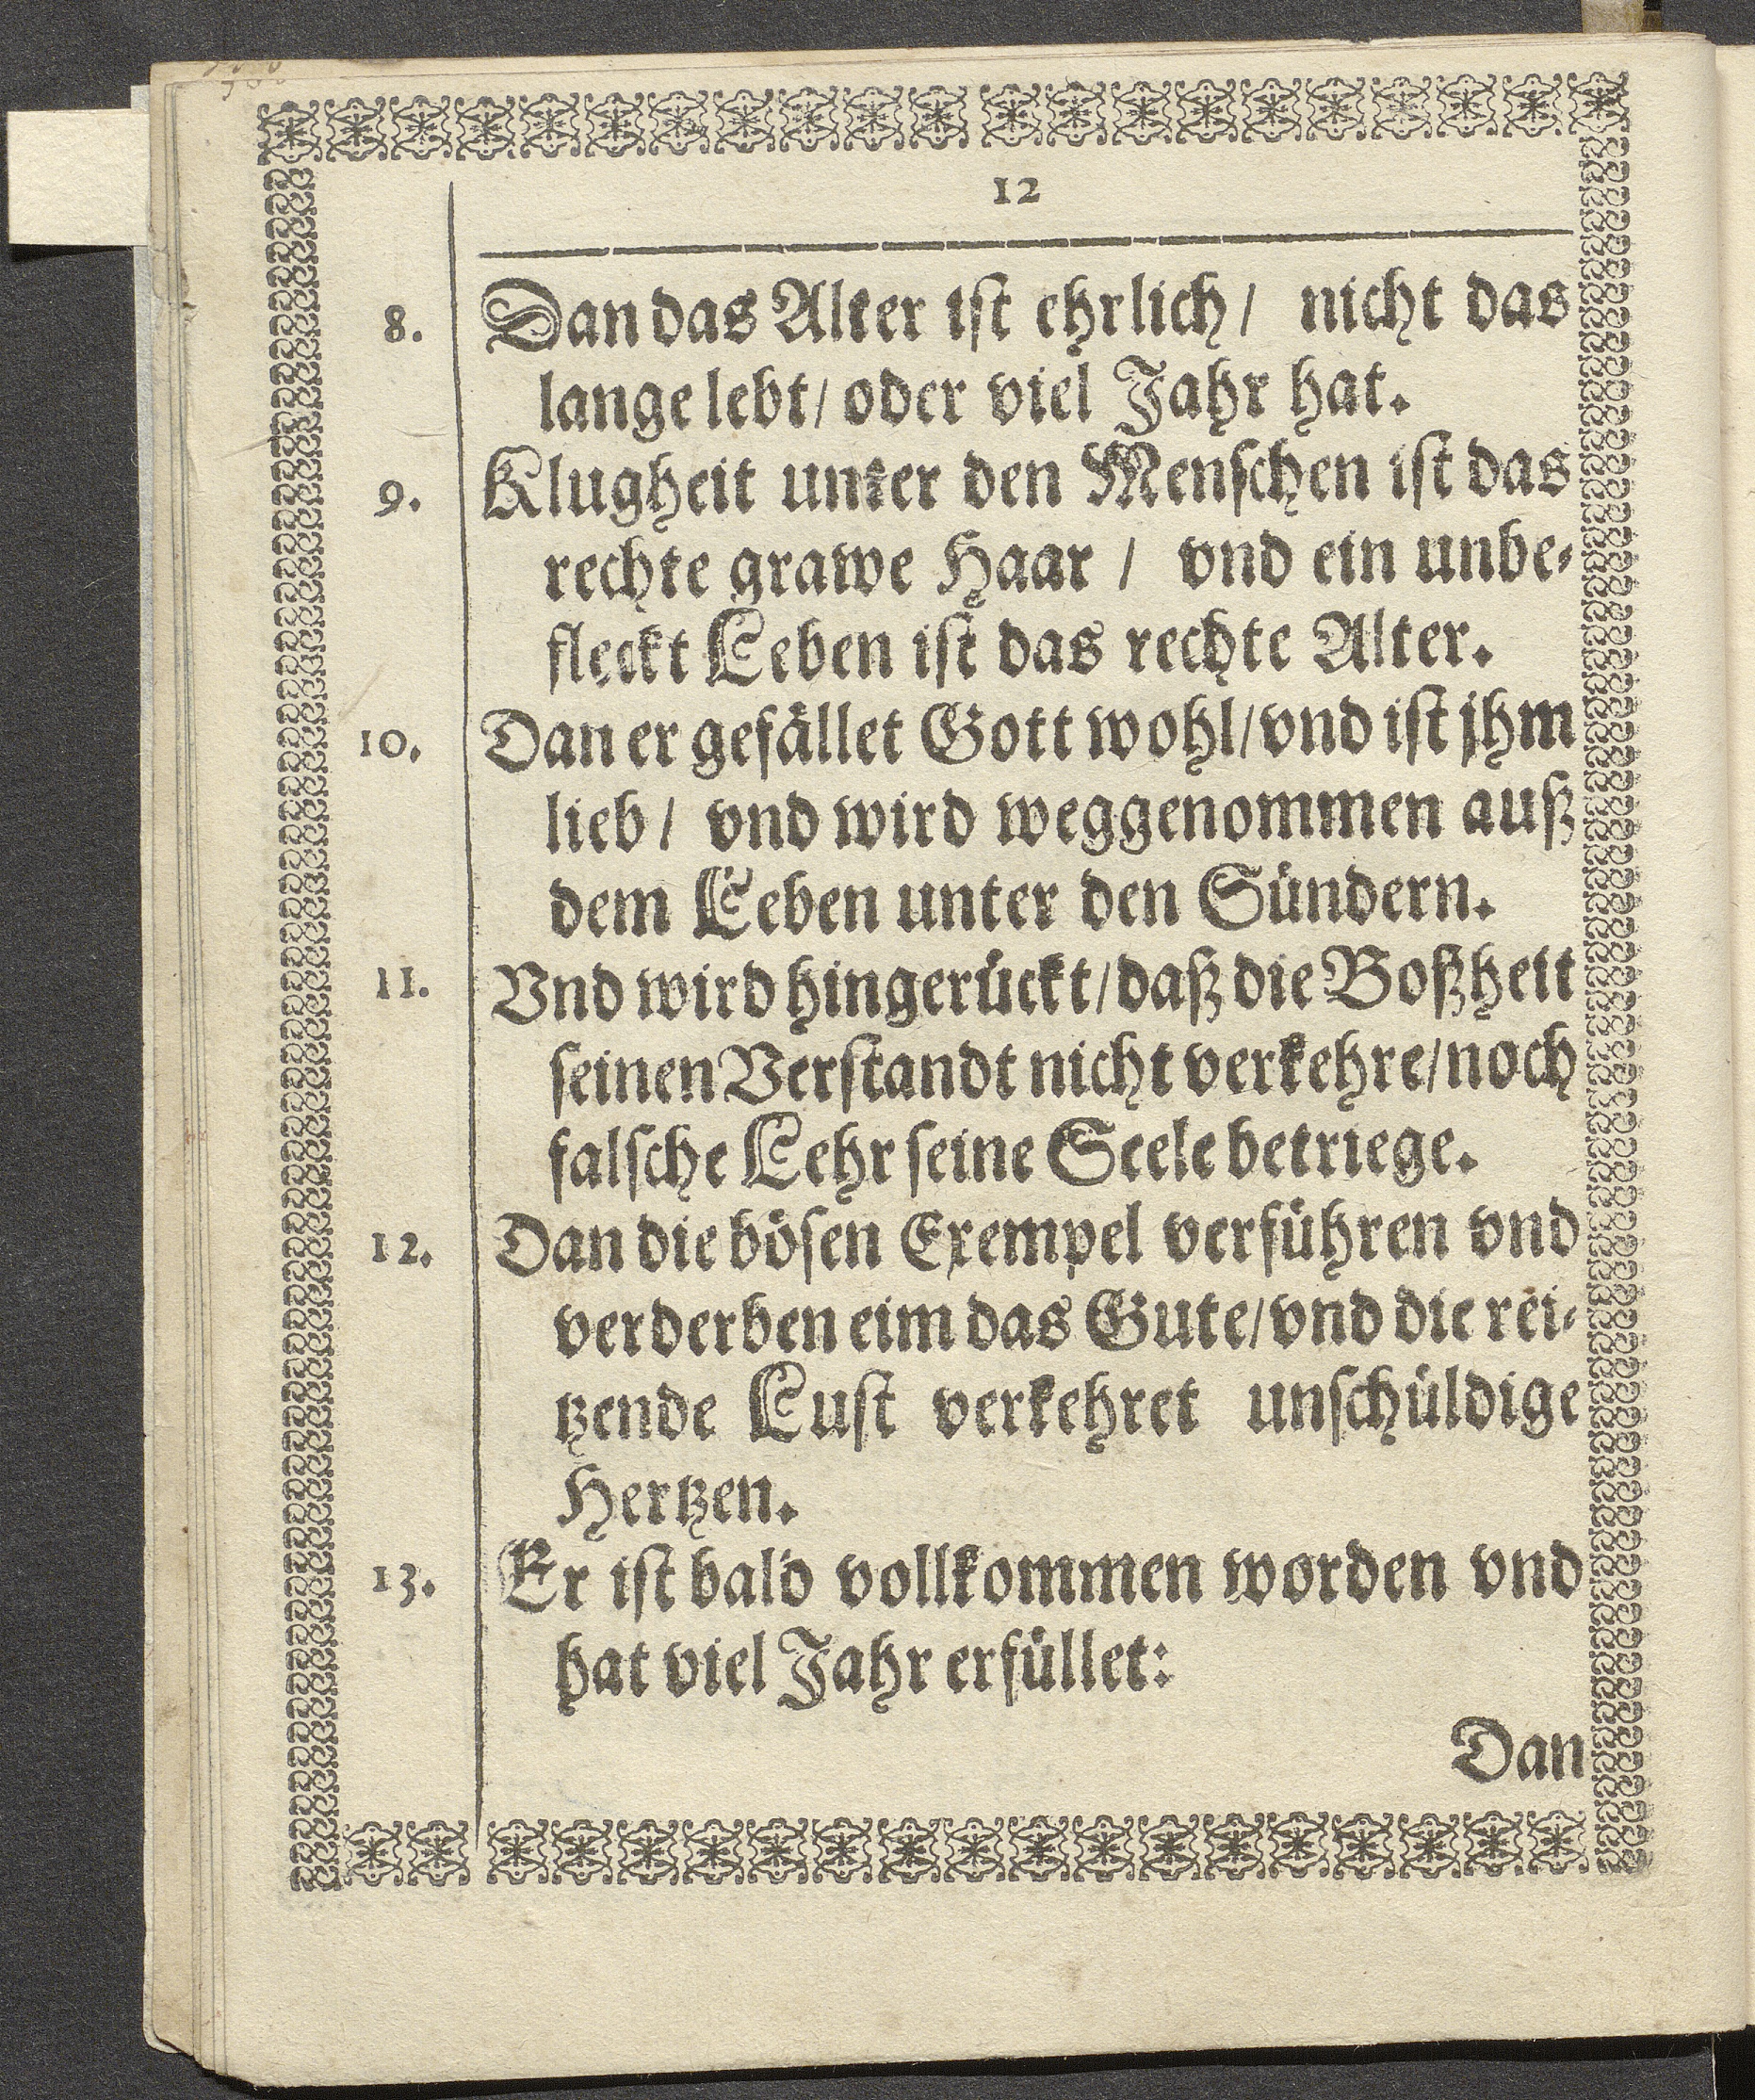 12
8. Dan das Alter ist ehrlich / nicht das
lange lebt / oder viel Jahr hat.
9. Klugheit unter den Menschen ist das
rechte grawe Haar / vnd ein unbe-
fleckt Leben ist das rechte Alter.
10. Dan er gefället Gott wohl / vnd ist jhm
lieb / vnd wird weggenommen auß
dem Leben unter den Sündern.
11. Vnd wird hingerückt / daß die Boßheit
seinen Verstandt nicht verkehre / noch
falsche Lehr seine Seele betriege.
12. Dan die bösen Exempel verführen vnd
verderben eim das Gute / vnd die rei-
tzende Lust verkehret unschüldige
Hertzen.
13. Er ist bald vollkommen worden vnd
hat viel Jahr erfüllet:
Dan